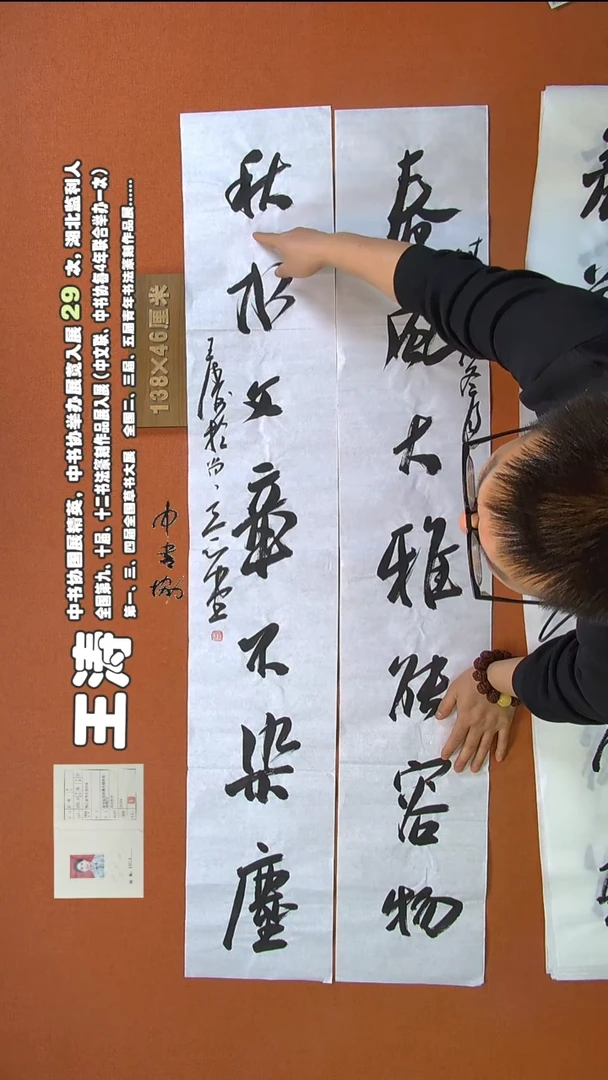 春风大雅能容物
秋水文章不染塵
138×46厘米
中书协国展精英，中书协举办展览入展 29 次，湖北监利人
全国第九、十届、十二书法篆刻作品展入展（中文联、中书协每4年联合举办一次）
第一、三、四届全国草书大展 全国二、三届、五届青年书法篆刻作品展……
王涛